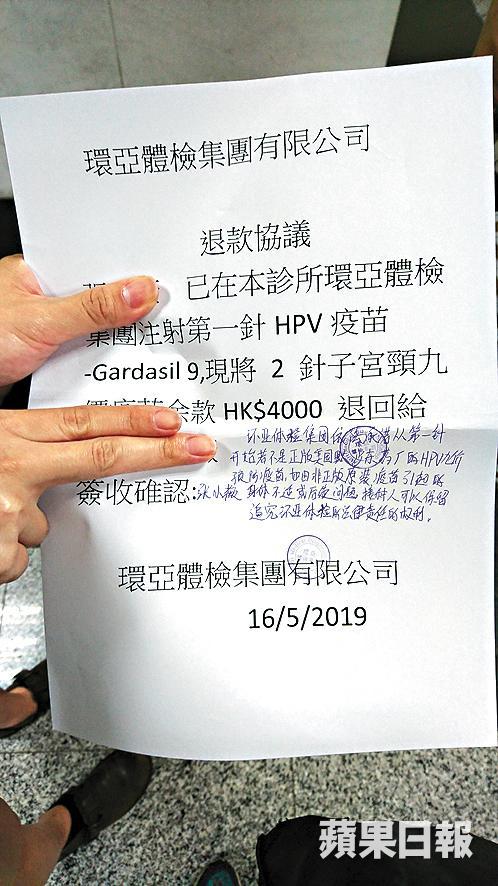 環亞體檢集團有限公司
退款協議
已在本診所環亞體檢
集團注射第一針 HPV 疫苗
-Gardasil 9,現將 2 針子宮頸九
價疫苗余款 HK$4000 退回給
环亚体检集团 承诺从第一针
开始若不是正版美国 厂的HPV9价
预防疫苗,如因非正版原装疫苗引起的
簽收確認:
身体不适或后遗问题,接种人可以保留
追究环亚体检的法律责任的权利。
環亞體檢集團有限公司
16/5/2019
蘋果日報